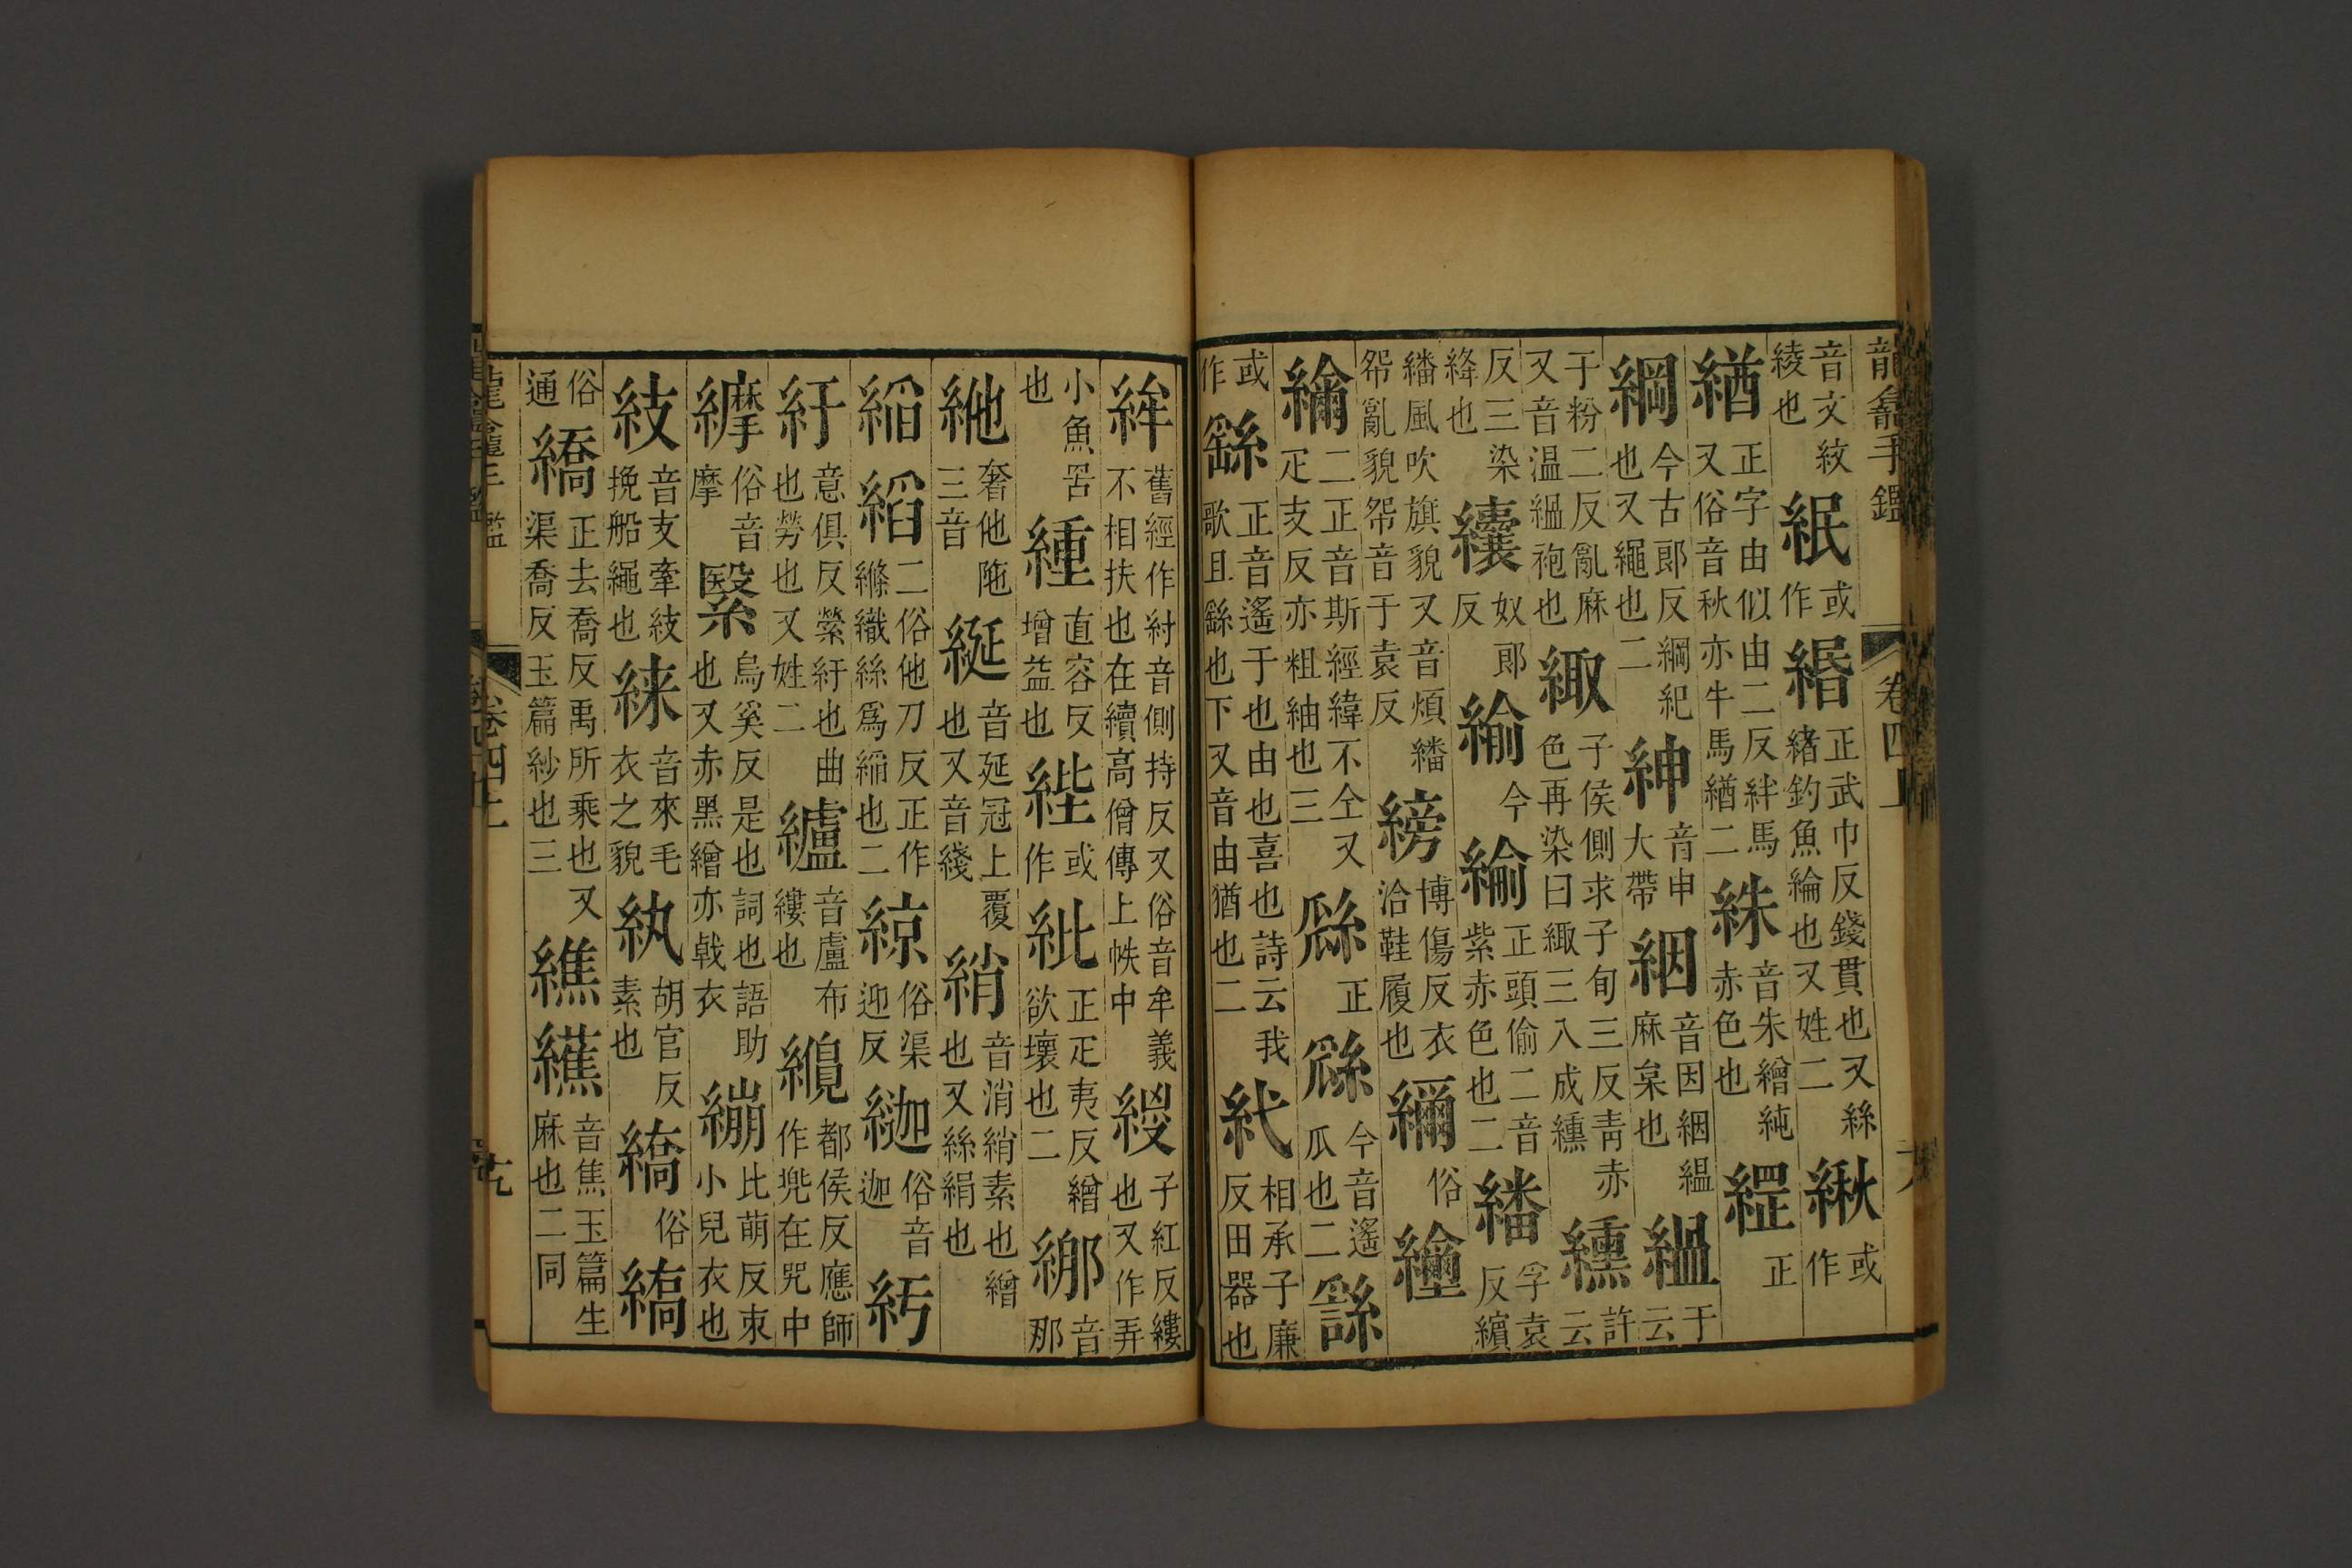 龍龕手鑑 卷四上
音文紋綾也 紙 或作 緡 正武巾反錢貫也又絲緒釣魚綸也又姓二 緧 或作
緧 正字由似由二反絆馬又俗音秋亦牛馬緧二 絑 音朱繒純赤色也 正
綱 今古郎反綱紀也又繩也二 紳 音申大帶 絪 音因絪縕麻枲也 縕 于云
于粉二反亂麻又音温縕袍也 緅 子侯側求子句三反青赤色再染曰緅三入成纁 纁 許云
反三染絳也 纕 奴郎反 綸 今 綸 正頭偷二音紫赤色也二 繙 孚袁反繽
繙風吹旗貌又音煩繙帤亂貌帤音于袁反 縍 博傍反衣洽鞋履也 俗
二正音斯經緯不仝又疋支反亦粗紬也三 正 今音遙瓜也二
或作 正音遙于也由也喜也詩云我歌且繇也下又音由猶也二 紎 相承子廉反田器也
舊經作紂音側持反又俗音牟義不相扶也在續高僧傳上帙中 緵 子紅反縷也又作弄
小魚罟也 緟 直容反增益也 或作 紕 正疋夷反繒欲壞也二 綁 音那
紽 奢他陁三音 綖 音延冠上覆也又音綫 綃 音消綃素也繒也又絲絹也
縚 二俗他刀反正作絛織絲爲縚也二 綡 俗渠迎反 俗音迦
紆 意俱反縈紆也曲也勞也又姓二 纑 音盧布縷也 都侯反應師作兠在咒中
俗音摩 繄 烏奚反是也詞也語助也又赤黑繒亦戟衣 繃 比萌反束小兒衣也
紋 音支牽紋挽船繩也 練 音來毛衣之貌 紈 胡官反素也 俗
俗通 繑 正去喬反禹所乘也又渠喬反玉篇紗也三 音焦玉篇生麻也二同